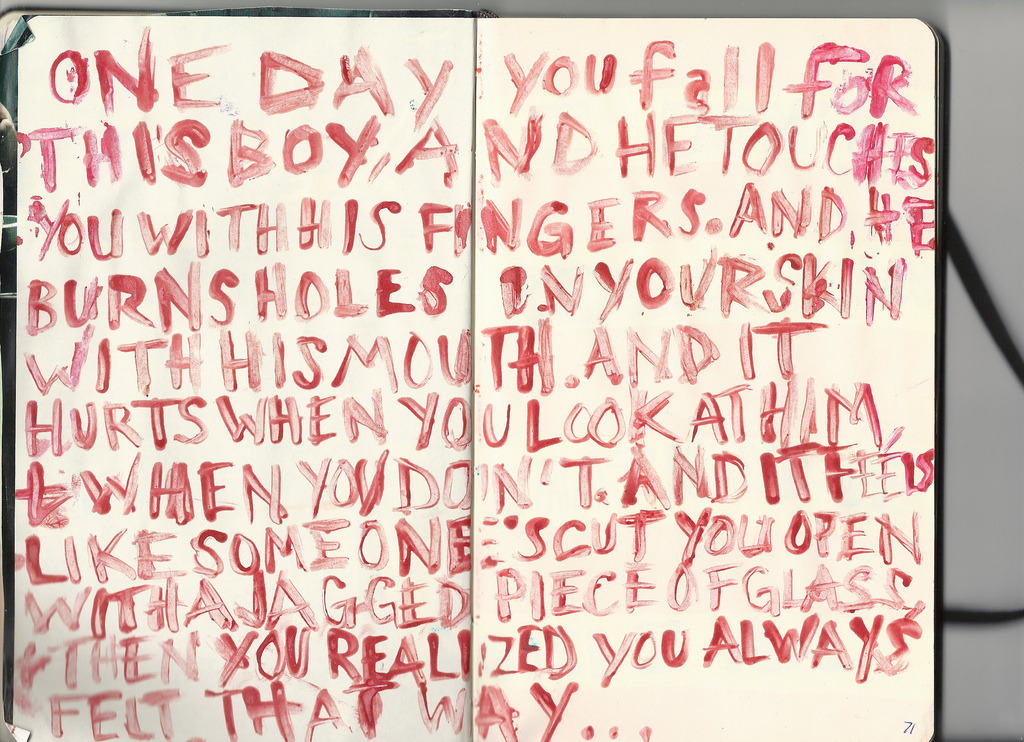 ONE DAY YOU fall FOR
THIS BOY, AND HE TOUCHES
YOU WITH HIS FINGERS. AND HE
BURNS HOLES IN YOUR SKIN
WITH HIS MOUTH. AND IT
HURTS WHEN YOU LOOK AT HIM,
& WHEN YOU DON'T. AND IT FEELS
LIKE SOMEONE'S CUT YOU OPEN
WITH A JAGGED PIECE OF GLASS,
& THEN YOU REALIZED YOU ALWAYS
FELT THAT WAY...
71